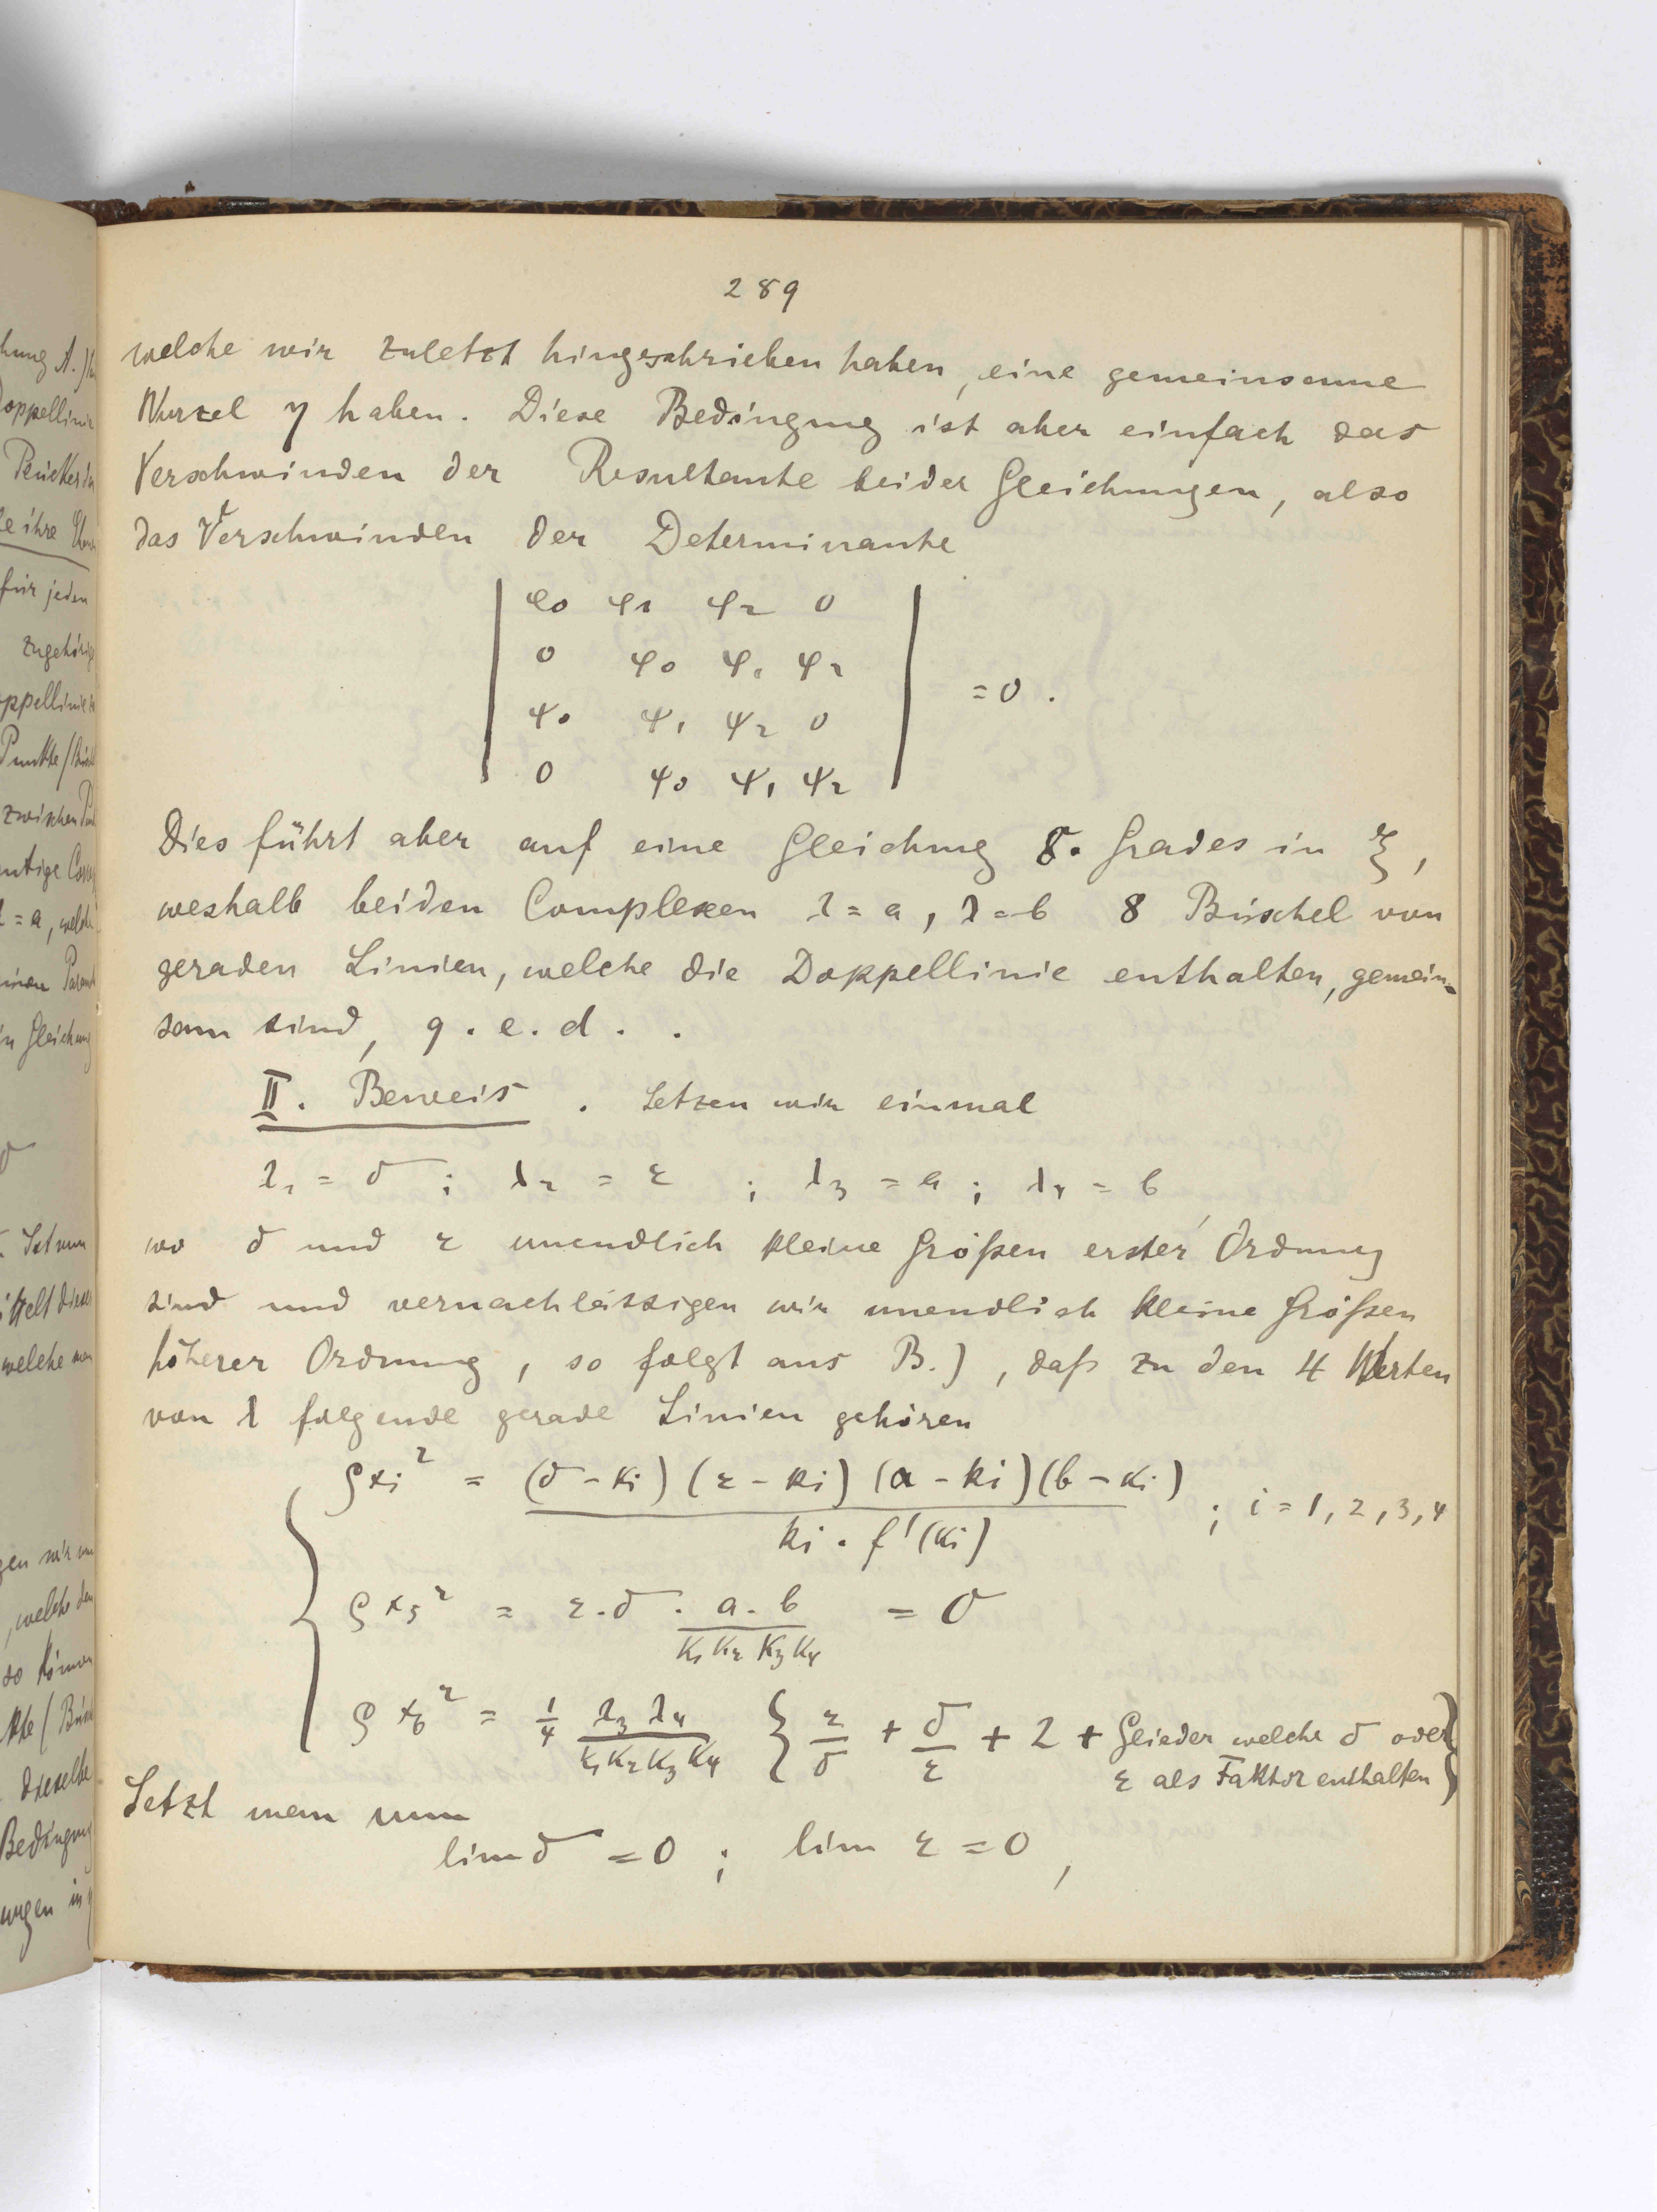 289
welche wir zuletzt hingeschrieben haben, eine gemeinsame
Wurzel η haben. Diese Bedingung ist aber einfach das
Verschwinden der Resultante beider Gleichungen, also
das Verschwinden der Determinante
| φ0 φ1 φ2 0 |
| 0 φ0 φ1 φ2 |
= 0 .
| ψ0 ψ1 ψ2 0 |
| 0 ψ0 ψ1 ψ2 |
Dies führt aber auf eine Gleichung 8. Grades in ξ,
weshalb beiden Complexen λ = a, λ = b 8 Büschel von
geraden Linien, welche die Doppellinie enthalten, gemein-
sam sind, q. e. d. .
II. Beweis. Setzen wir einmal
λ1 = δ ; λ2 = ε ; λ3 = a ; λ4 = b
wo δ und ε unendlich kleine Größen erster Ordnung
sind und vernachlässigen wir unendlich kleine Größen
höherer Ordnung, so folgt aus B.), daß zu den 4 Werten
von λ folgende gerade Linien gehören
ρxi² = (δ - ki) (ε - ki) (a - ki) (b - ki) ; i = 1, 2, 3, 4
ki . f'(ki)
ρx5² = ε . δ . a . b = 0
k1 k2 k3 k4
ρx6² = 1/4 λ3 λ4 { ε/δ + δ/ε + 2 + Glieder welche δ oder
k1 k2 k3 k4 ε als Faktor enthalten }
Setzt man nun
lim δ = 0 ; lim ε = 0 ,